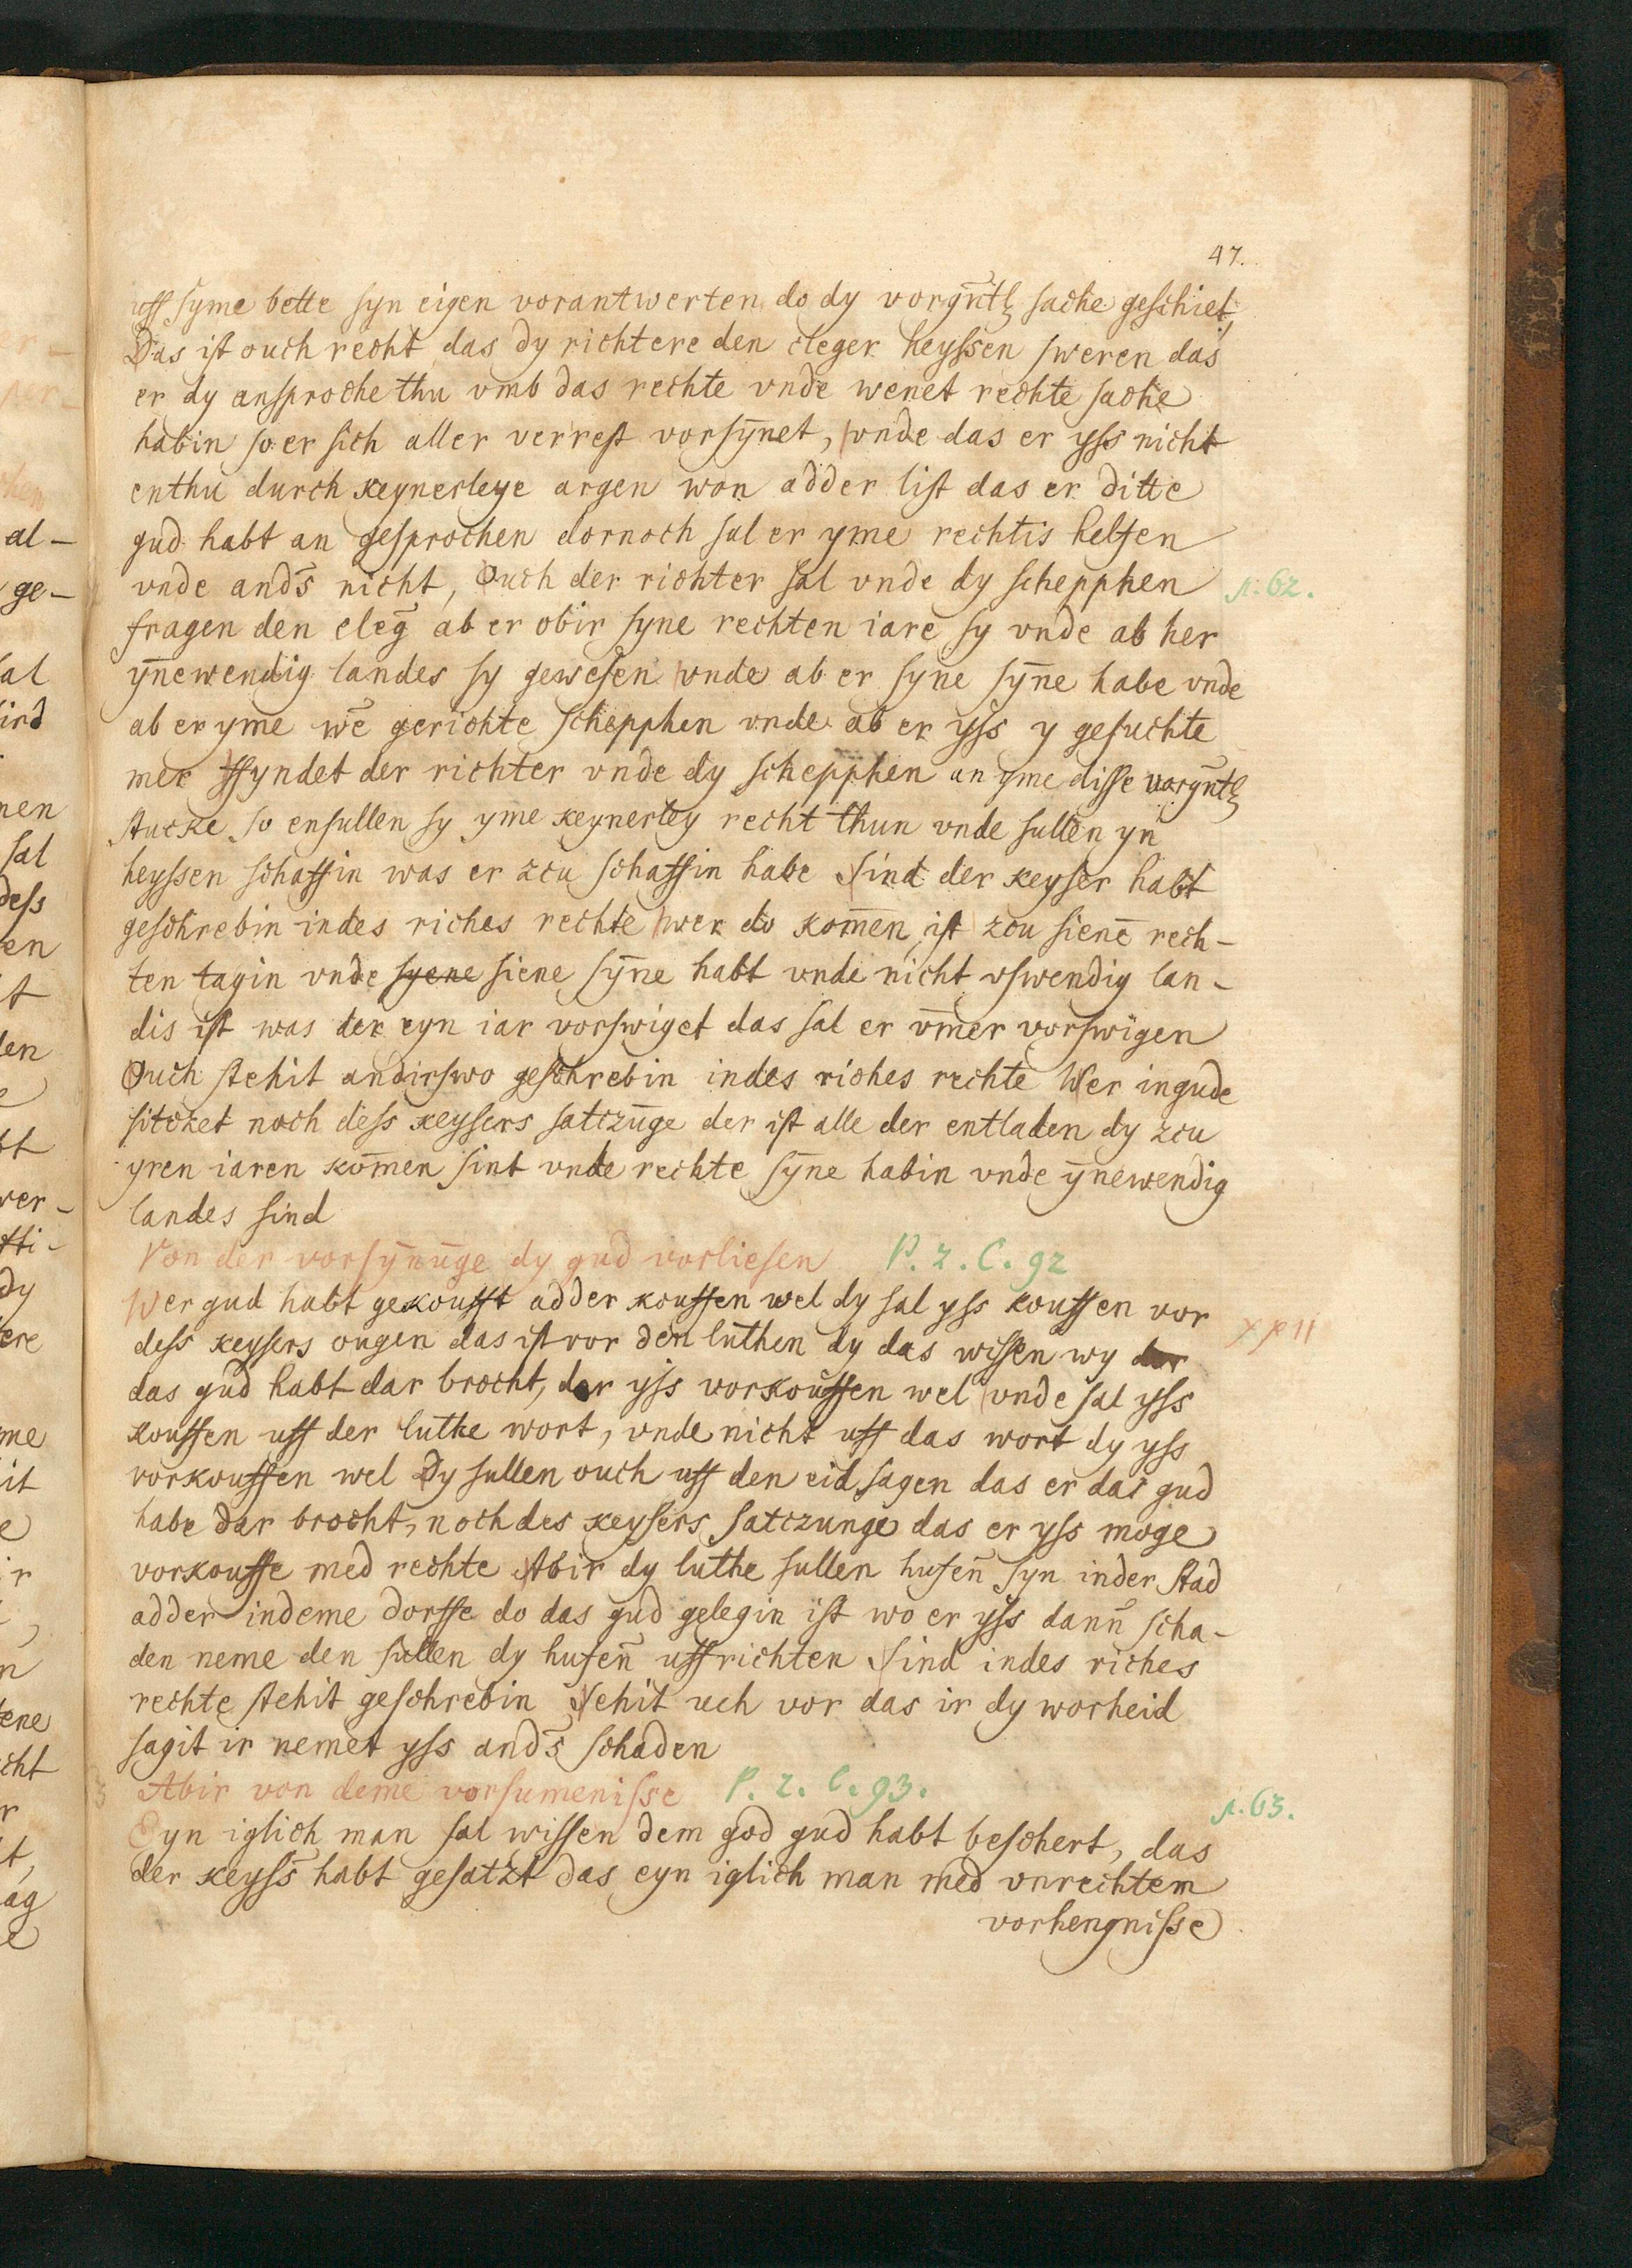 47.
uff syme bette syn eigen vorantwerten do dy vorgn̄tꝫ sache geschiet,
Das ist ouch recht das dy richtere den cleger heyssen sweren das
er dy ansproche thu vmb das rechte vnde wenet rechte sache
habin so er sich aller verrest vorsȳnet, vnde das er yss nicht
enthu durch keynerleye argen won adder list das er ditte
gud habt an gesprochen dornoch sal er yme rechtis helfen
vnde and̄s nicht, Ouch der richter sal vnde dy schepphen
p. 62.
fragen den cleḡ ab er obir syne rechten iare sy vnde ab her
ȳnewendig landes sy gewesen vnde ab er syne sȳne habe vnde
ab er yme wē gerichte schepphen vnde ab er yss y gesuchte
mer ffyndet der richter vnde dy schepphen an yme disse vorgn̄tꝫ
stucke so ensullen sy yme keynerley recht thun vnde sullen yn
heyssen schaffin was er zcu schaffin habe Sind der keyser habt
geschrebin indes riches rechte wer do kom̄en ist zcu sienē rech-
ten tagin vnde syene siene sȳne habt vnde nicht vswendig lan-
dis ist was der eyn iar vorswiget das sal er vm̄er vorswigen
Ouch stehit andirswo geschrebin indes riches rechte Wer ingude
sitczet noch dess keysers satczūge der ist alle der entladen dy zcu
yren iaren kom̄en sint vnde rechte sȳne habin vnde ȳnewendig
landes sind
Von der vorsȳnūge dy gud vorliesen P. 2. C. 92
Wer gud habt gekoufft adder kouffen wel dy sal yss kouffen vor
dess keysers ougen das ist vor den luthen dy das wissen wy der
das gud habt dar brocht, der yss vorkouffen wel vnde sal yss
kouffen uff der luthe wort, vnde nicht uff das wort dy yss
vorkouffen wel Dy sullen ouch uff den eid sagen das er das gud
habe dar brocht, noch des keysers satczunge das er yss moge
vorkouffe med rechte Abir dy luthe sullen husen̄ syn inder stad
adder indeme dorffe do das gud gelegin ist wo er yss dann̄ scha-
den neme den sullen dy husen̄ uffrichten Sind indes riches
rechte stehit geschrebin Sehit uch vor das ir dy worheid
sagit ir nemet yss and̄s schaden
Abir von deme vorsumenisse P. 2. C. 93.
p. 63.
Eyn iglich man sal wissen dem god gud habt beschert, das
der keys̄s habt gesatzt das eyn iglich man med vnrechtem
vorhengnisse